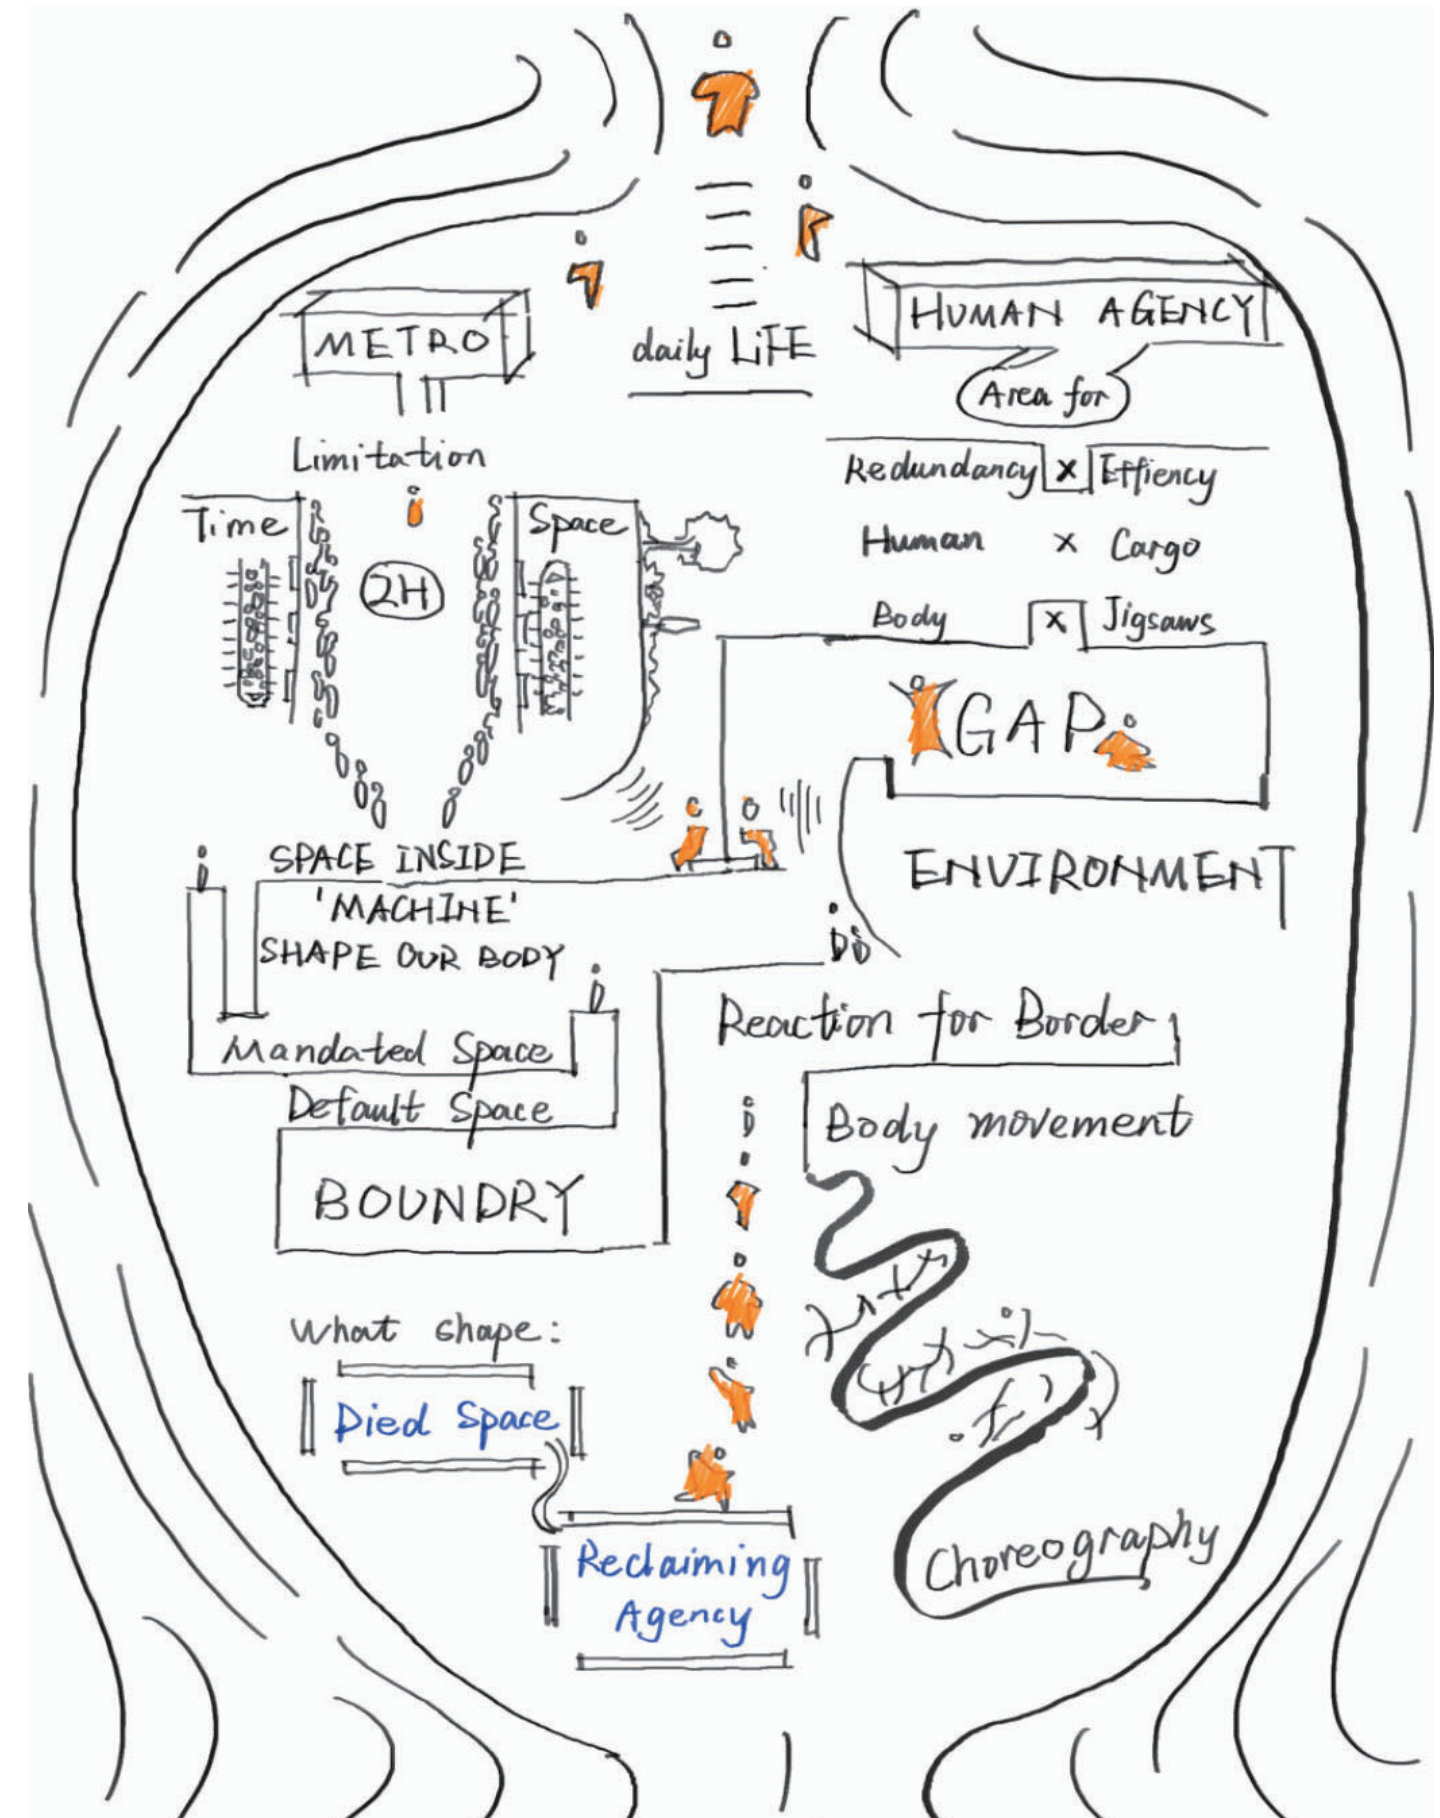 METRO
daily LiFE
HUMAN AGENCY
Area for
Limitation
Time
2H
Space
Redundancy x Effiency
Human x Cargo
Body x Jigsaws
GAP
SPACE INSIDE
'MACHINE'
SHAPE OUR BODY
ENVIRONMENT
Mandated Space
Default Space
BOUNDRY
Reaction for Border
Body movement
What shape:
Died Space
Reclaiming
Agency
Choreography